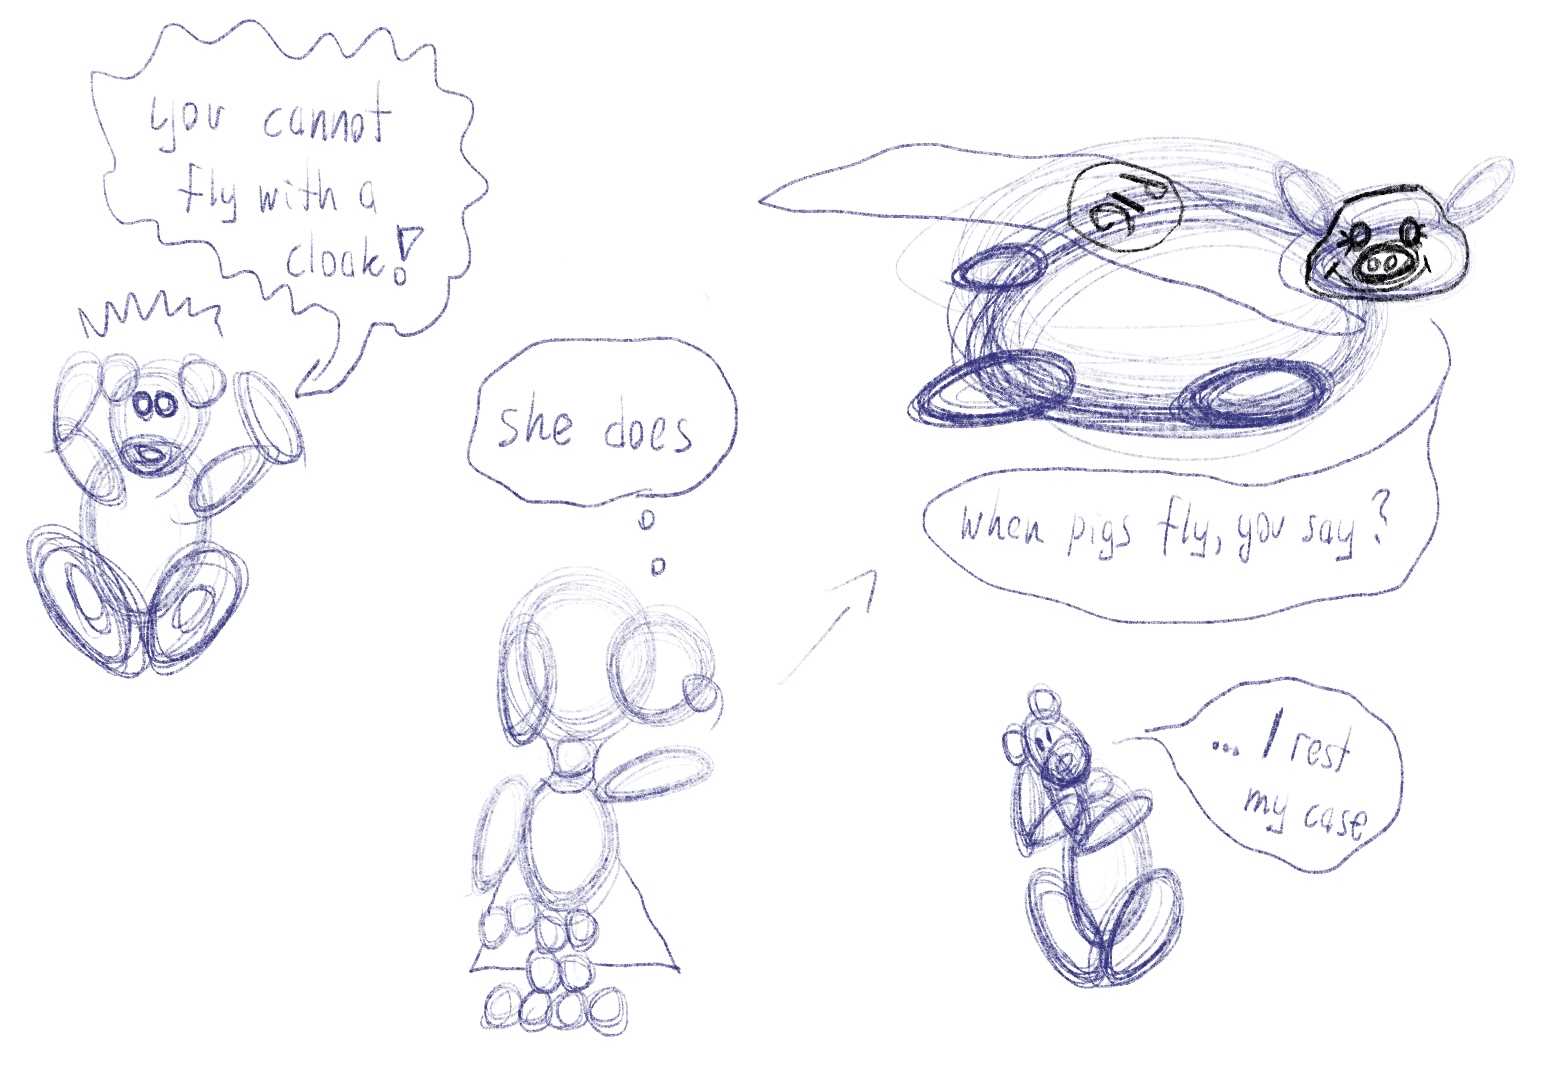 you cannot
fly with a
cloak!
she does
PIG
when pigs fly, you say?
... I rest
my case